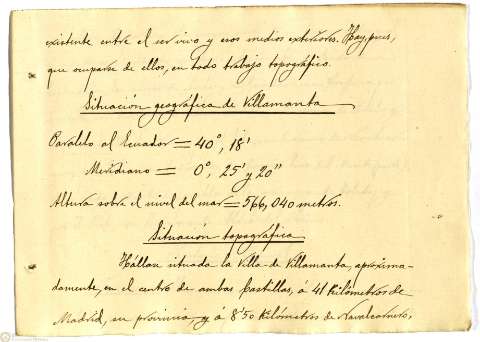 existente entre el ser vivo y esos medios exteriores. Hay, pues,
que ocuparse de ellos, en todo trabajo topográfico.
Situación geográfica de Villamanta
Paralelo al Ecuador = 40°, 18'
Meridiano = 0°, 25' y 20"
Altura sobre el nivel del mar = 566,040 metros.
Situación topográfica
Hállase situada la Villa de Villamanta, aproxima-
damente, en el centro de ambas Castillas, á 41 Kilómetros de
Madrid, su provincia, y á 8'50 Kilómetros de Navalcarnero,